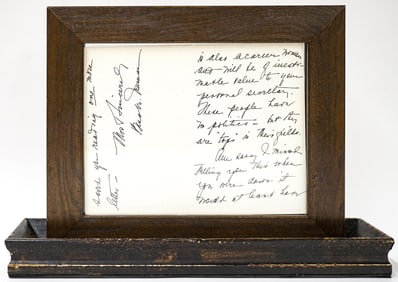 is also a career woman
and will be of inesti-
mable value to your
personal secretary.
These people have
no politics - but they
are "tops" in their fields.
Am sorry I missed
telling you this when
you were down. It
would at least have
saved you reading one more
letter -
Most Sincerely